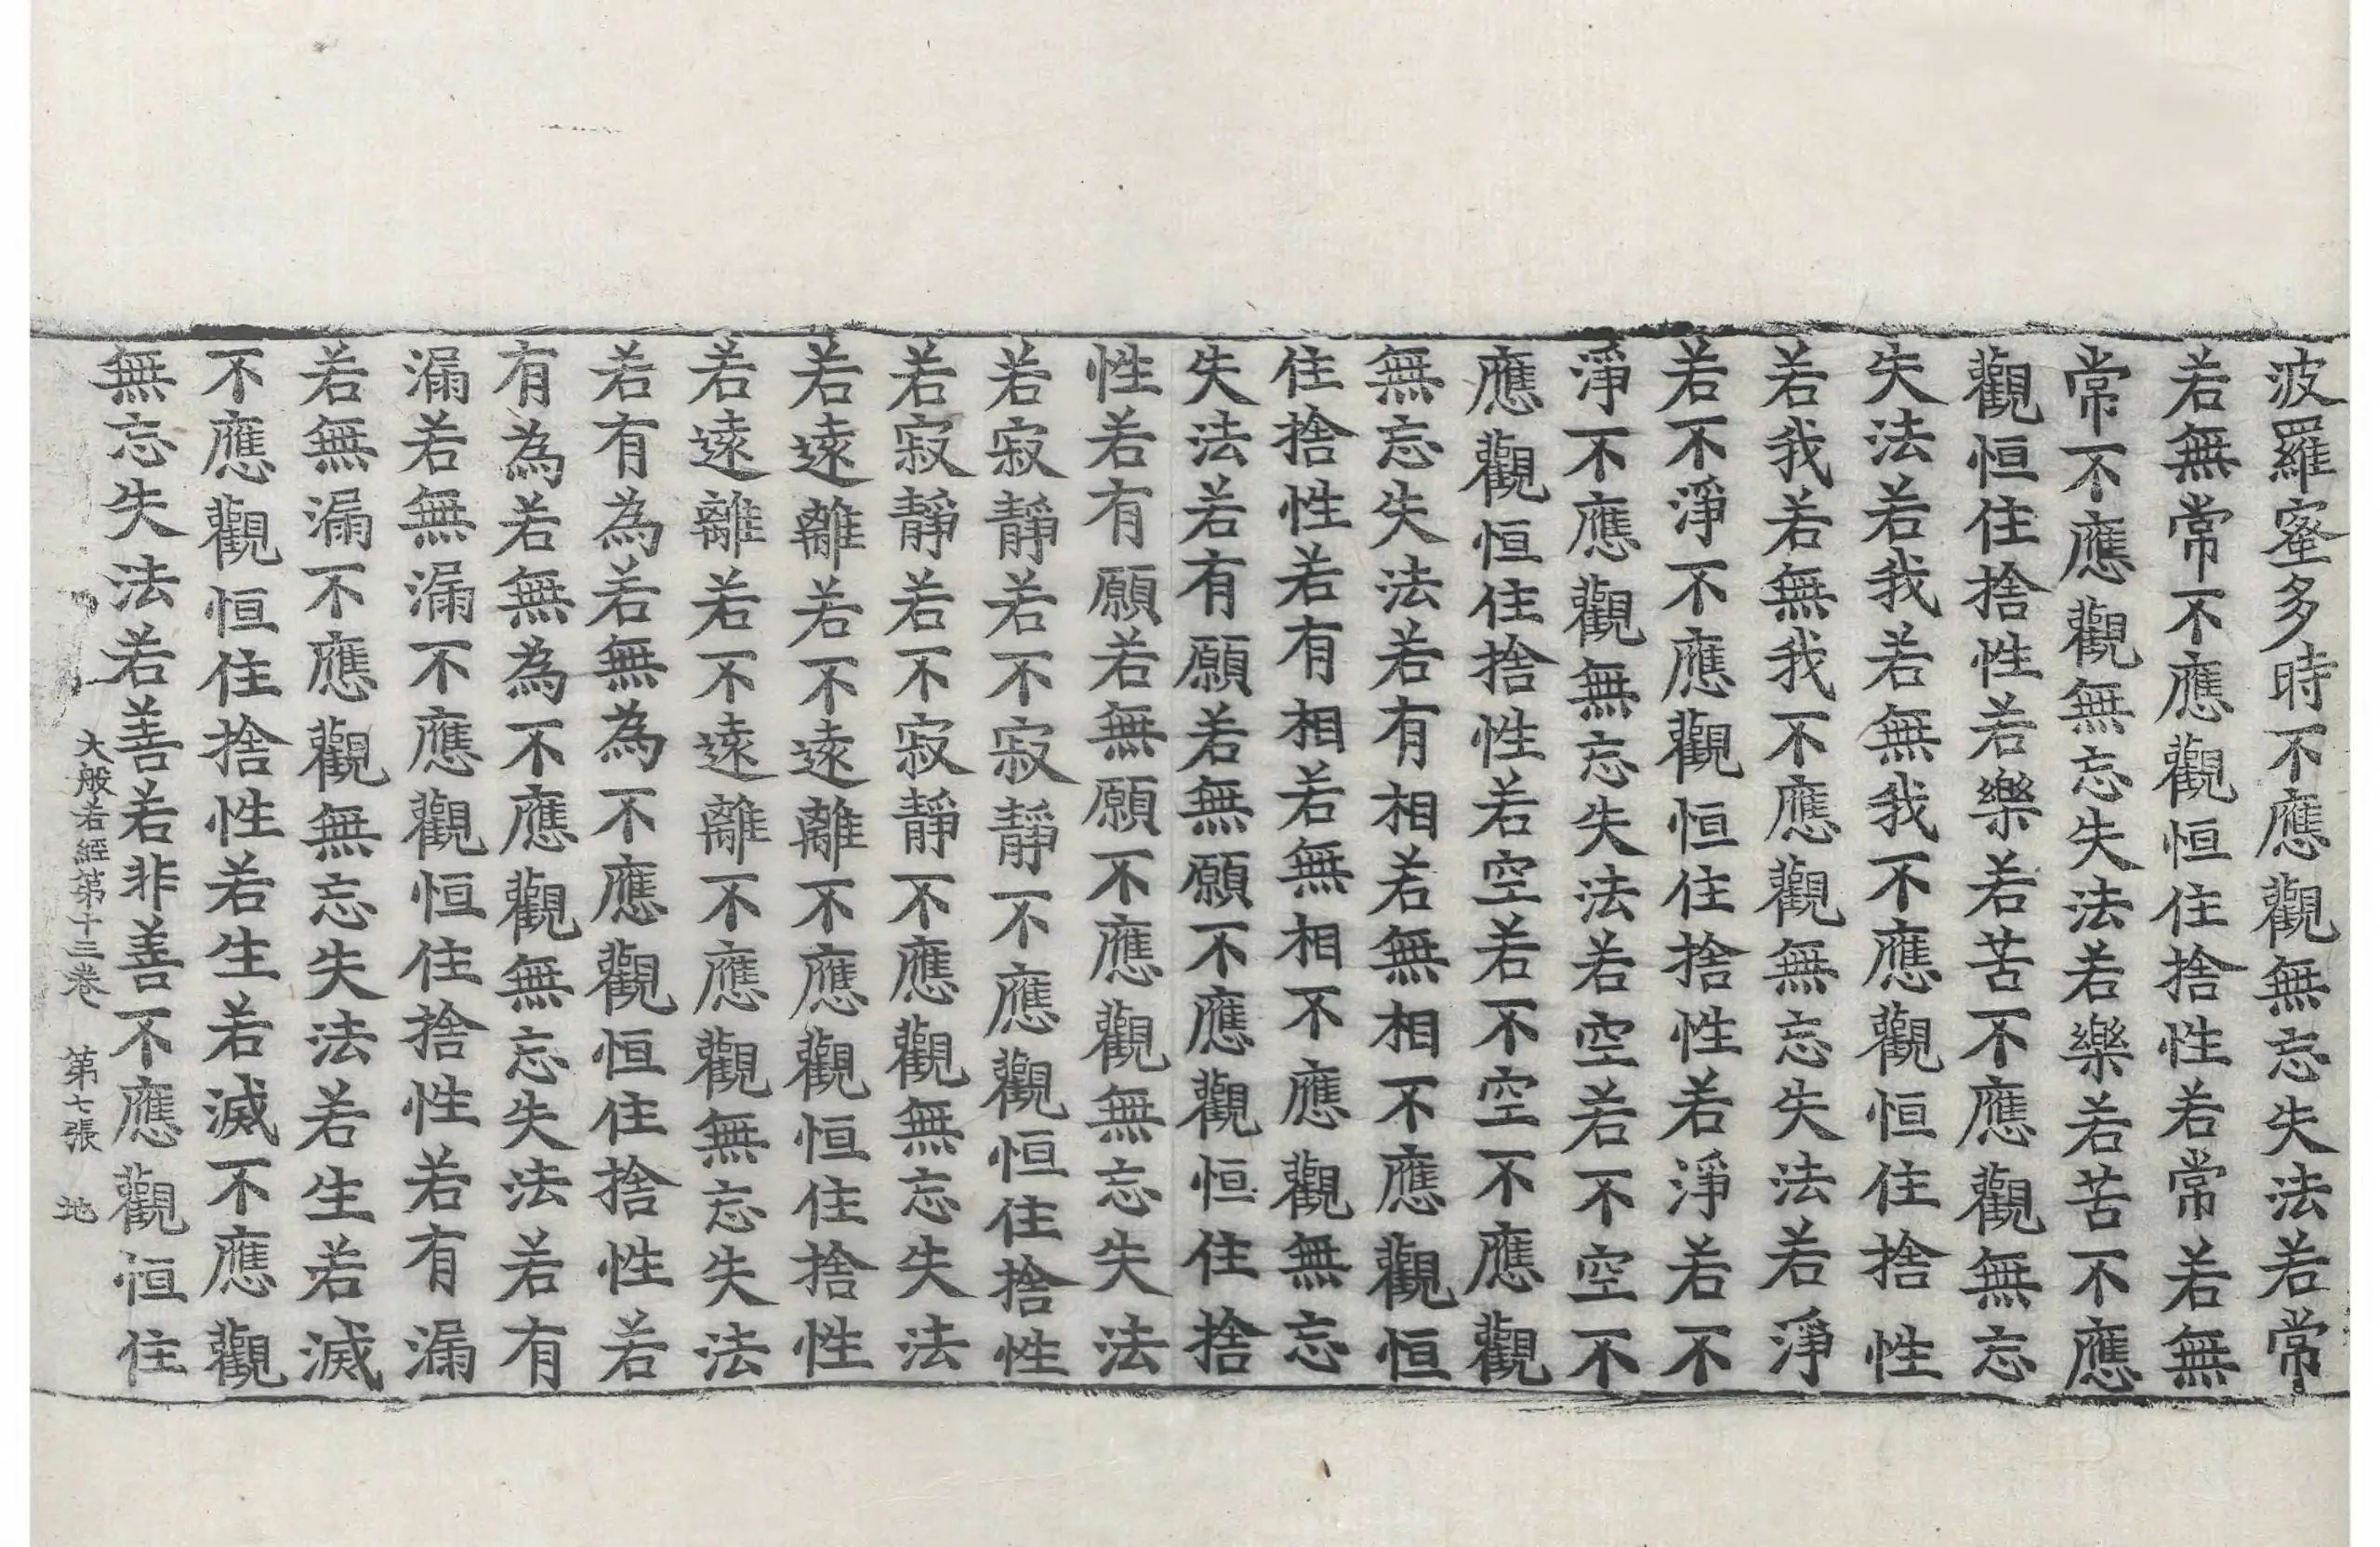 波羅蜜多時不應觀無忘失法若常
若無常不應觀恒住捨性若常若無
常不應觀無忘失法若樂若苦不應
觀恒住捨性若樂若苦不應觀無忘
失法若我若無我不應觀恒住捨性
若我若無我不應觀無忘失法若淨
若不淨不應觀恒住捨性若淨若不
淨不應觀無忘失法若空若不空不
應觀恒住捨性若空若不空不應觀
無忘失法若有相若無相不應觀恒
住捨性若有相若無相不應觀無忘
失法若有願若無願不應觀恒住捨
性若有願若無願不應觀無忘失法
若寂靜若不寂靜不應觀恒住捨性
若寂靜若不寂靜不應觀無忘失法
若遠離若不遠離不應觀恒住捨性
若遠離若不遠離不應觀無忘失法
若有為若無為不應觀恒住捨性若
有為若無為不應觀無忘失法若有
漏若無漏不應觀恒住捨性若有漏
若無漏不應觀無忘失法若生若滅
不應觀恒住捨性若生若滅不應觀
無忘失法若善若非善不應觀恒住
大般若經第十三卷 第七張 地